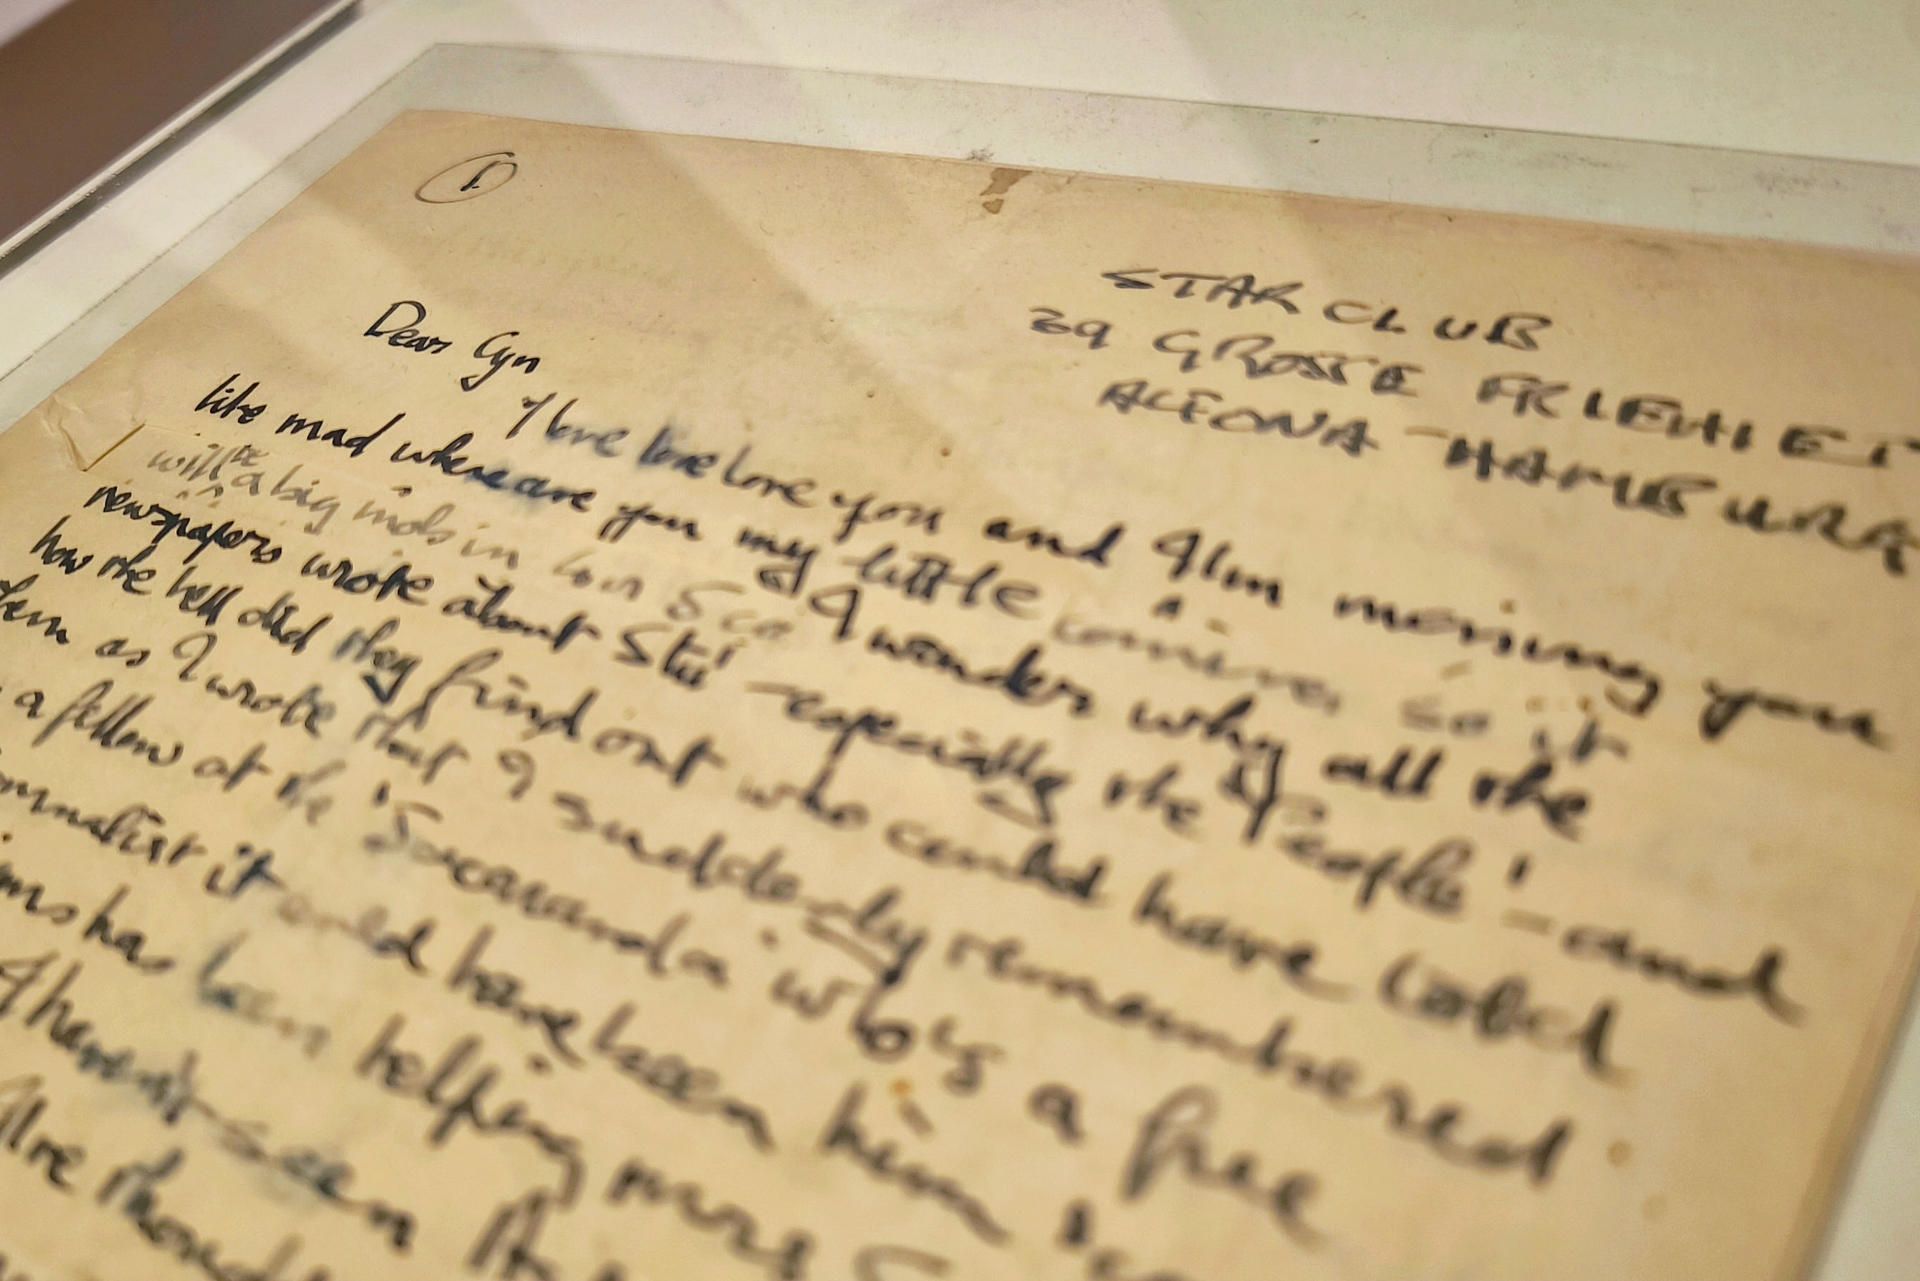 1.
STAR CLUB
39 GROSSE FRIEHIET
ALTONA - HAMBURG
Dear Cyn
I love love love you and I'm missing you
like mad where are you my little so it
will be a big mob in I wonder why all the
newspapers wrote about Stu - especially the 'People' - and
how the hell did they find out who could have told
them as I wrote that I suddenly remembered
a fellow at the 'Jacaranda' who's a free
it could have been him
has been helping mrs
I haven't seen